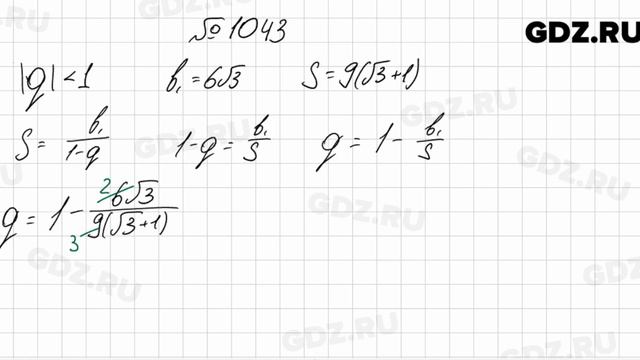 № 1043
GDZ.RU
|q| < 1 b₁ = 6√3 S = 9(√3+1)
S = b₁/(1-q) 1-q = b₁/S q = 1 - b₁/S
2
q = 1 - 6√3/(9(√3+1))
3
GDZ.RU
GDZ.RU
GDZ.RU
GDZ.RU
GDZ.RU
GDZ.RU
GDZ.RU